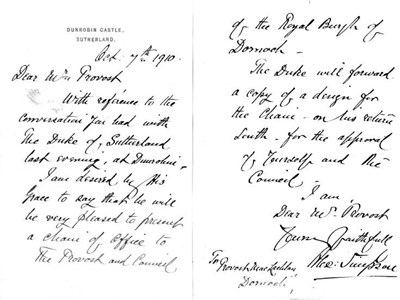 DUNROBIN CASTLE,
SUTHERLAND.
Oct. 7th 1910.
Dear Mr Provost
With reference to the
conversation you had with
The Duke of Sutherland
last evening, at Dunrobin -
I am desired by His
Grace to say that he will
be very pleased to present
a chain of Office to
The Provost and Council
of the Royal Burgh of
Dornoch -
The Duke will forward
a copy of a design for
the Chain - on his return
South - for the approval
of Yourself and the
Council -
I am,
Dear Mr Provost
Yours faithfully
Alex: Simpson
To
Provost
Dornoch